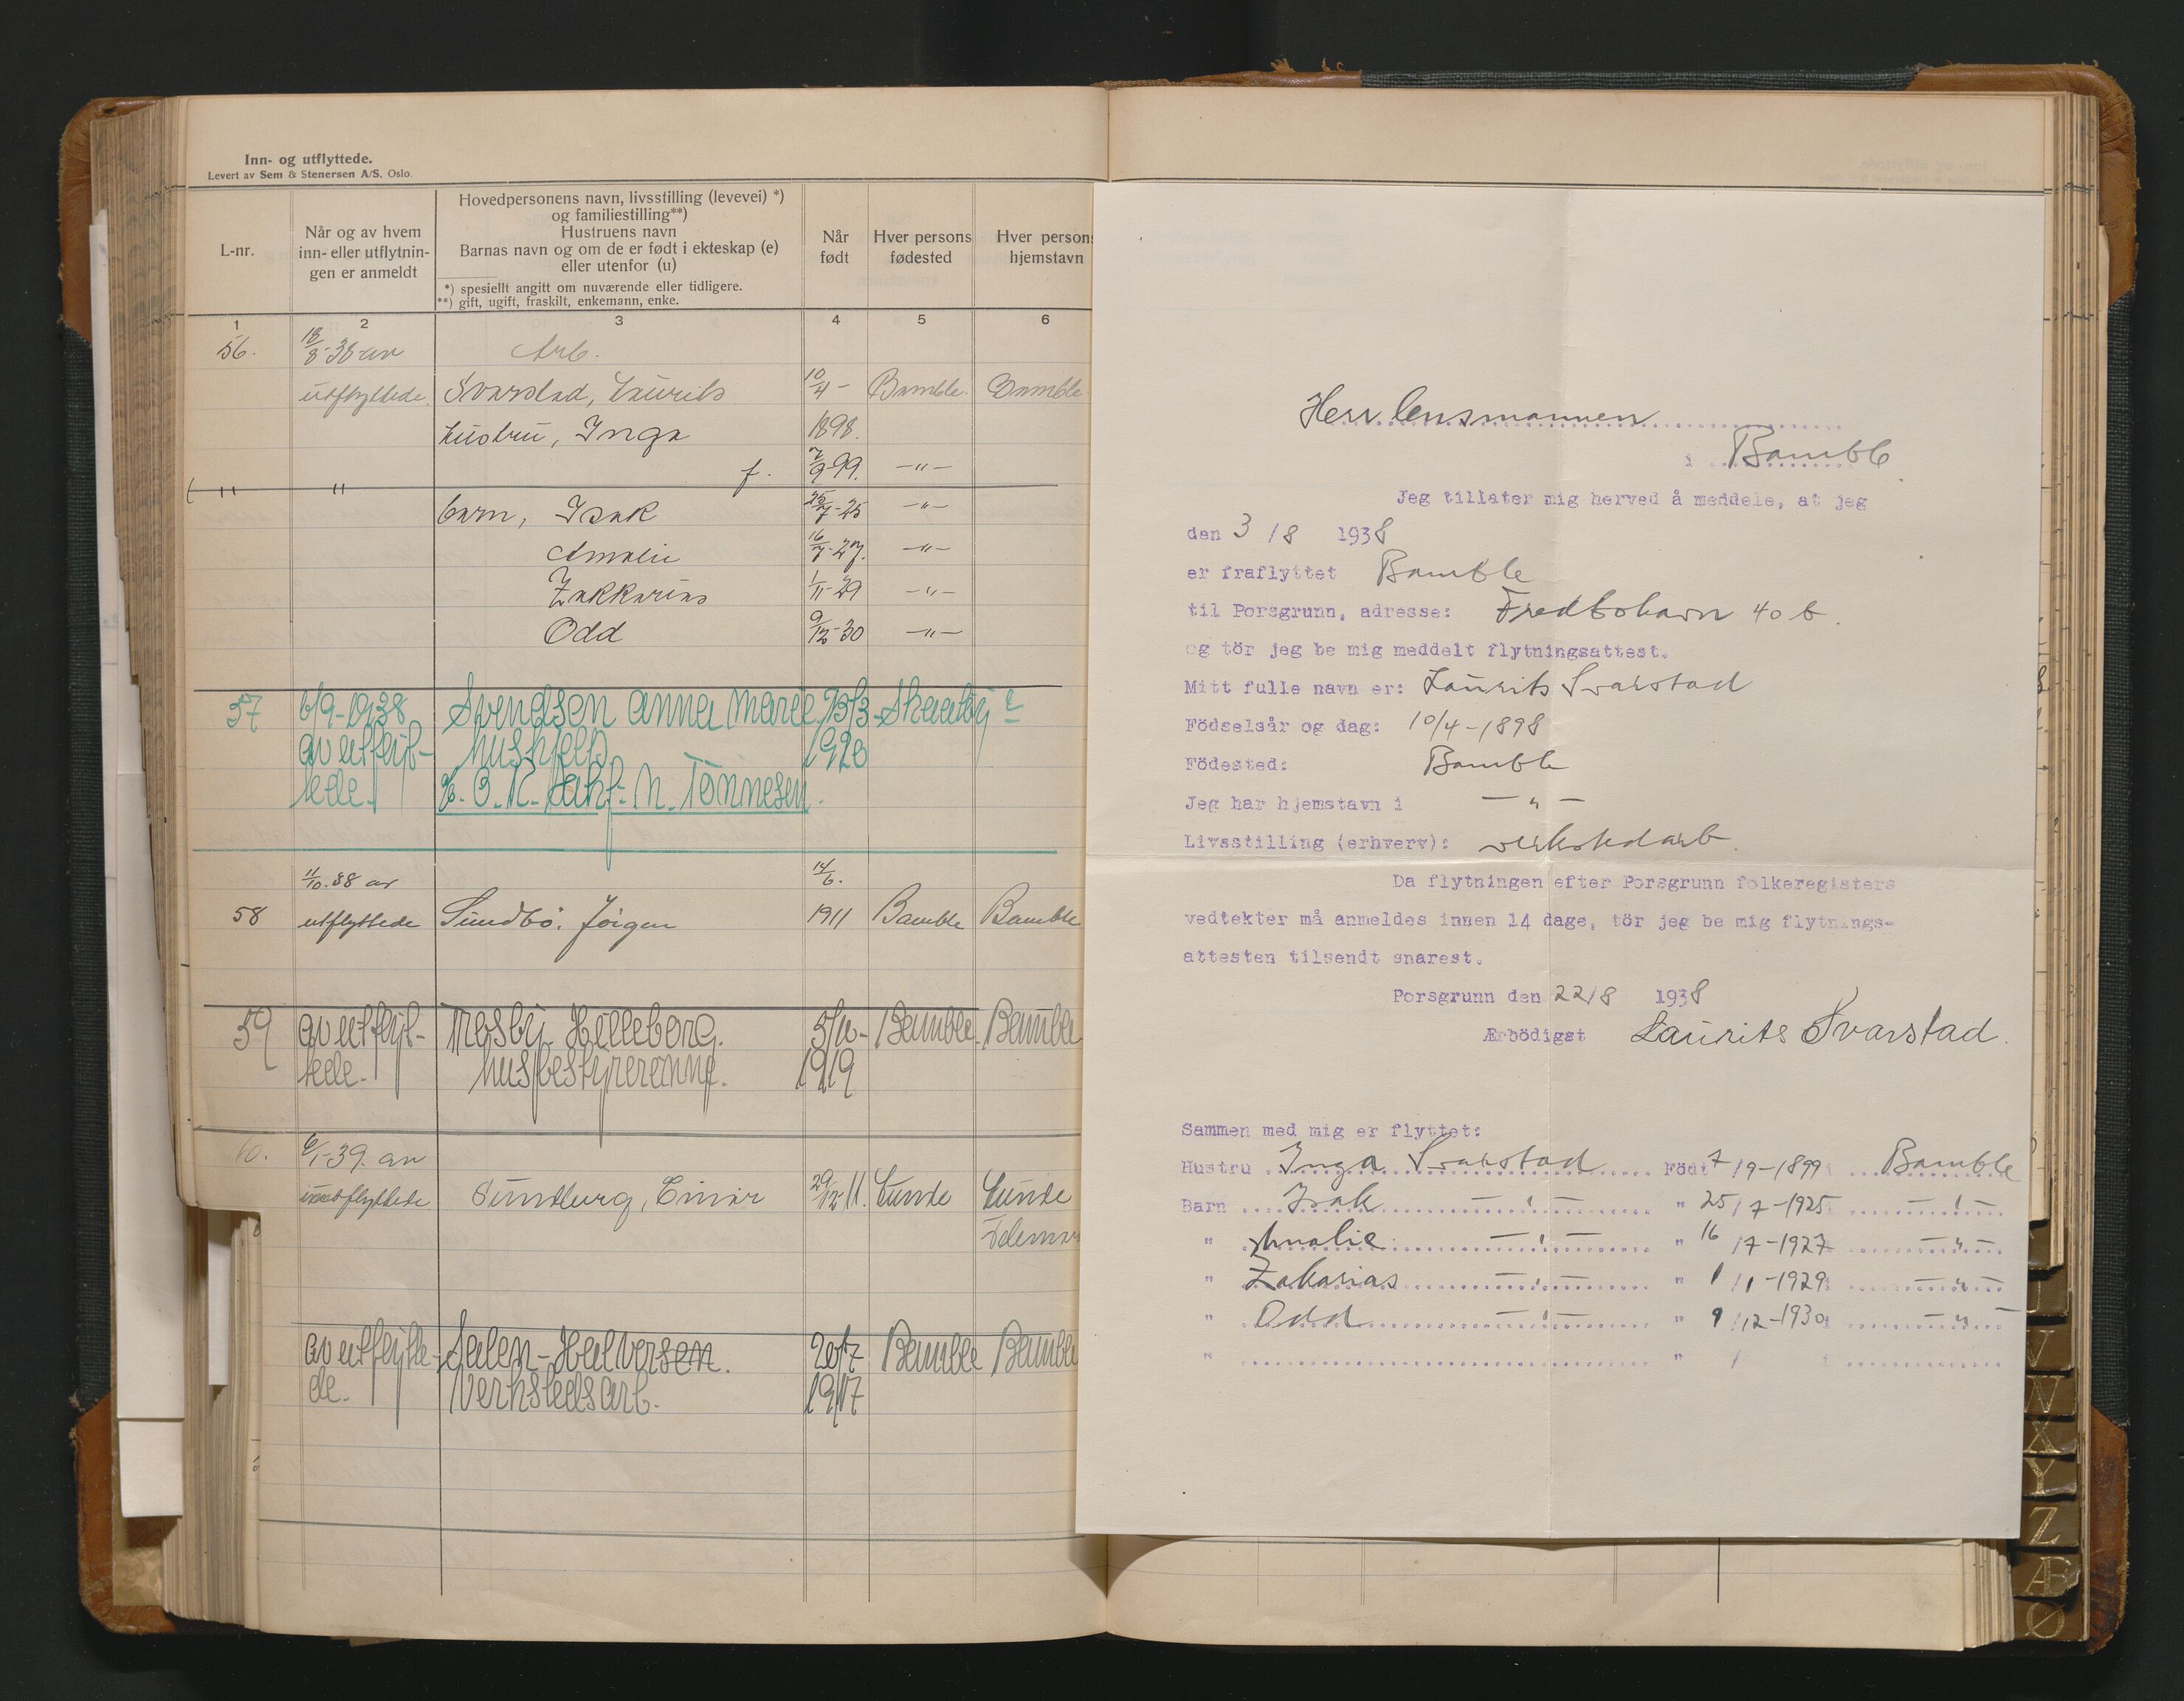 Inn- og utflyttede.
Levert av Sem & Stenersen A/S, Oslo.
L-nr.
Når og av hvem
inn- eller utflytnin-
gen er anmeldt
Hovedpersonens navn, livsstilling (levevei) *)
og familiestilling**)
Hustruens navn
Barnas navn og om de er født i ekteskap (e)
eller utenfor (u)
*) spesiellt angitt om nuværende eller tidligere.
**) gift, ugift, fraskilt, enkemann, enke.
Når
født
Hver persons
fødested
Hver persons
hjemstavn
1 2 3 4 5 6
56. 18/8-38 av Arb.
utflyttede. Svarstad, Laurits 10/4- Bamble Bamble
hustru, Inga 1898.
f. 7/9-99. -"-
" "
barn, Isak 25/7-25 -"-
Amalie 16/7-27. -"-
Zakkarias 1/11-29 -"-
Odd 9/12-30 -"-
57 6/9-1938 Svendsen Anna Marie 23/3- Skaatøy
av utflyt- hushjelp 1920
tede. N. Tønnesen.
11/10.38 av 14/6.
58 utflyttede Sundbö, Jörgen 1911 Bamble Bamble
59 av utflyt- Hilleborg. 5/10- Bamble. Bamble
tede. husbestyrerinne. 1919
60. 6/1-39. av
utflyttede Sundberg, Einar 29/12 11. Lunde Lunde
Telemar
av utflytte- Salen-Halversen. 20/7 Bamble Bamble
de. Verkstedsarb. 1917
Herr lensmannen
i Bamble
Jeg tillater mig herved å meddele, at jeg
den 3/8 1938
er fraflyttet Bamble
til Porsgrunn, adresse: Fredbohavn 40 b.
og tör jeg be mig meddelt flytningsattest.
Mitt fulle navn er: Laurits Svarstad
Födselsår og dag: 10/4-1898
Födested: Bamble
Jeg har hjemstavn i -"-
Livsstilling (erhverv): verkstedarb.
Da flytningen efter Porsgrunn folkeregisters
vedtekter må anmeldes innen 14 dage, tör jeg be mig flytnings-
attesten tilsendt snarest.
Porsgrunn den 22/8 1938
Ærbödigst Laurits Svarstad.
Sammen med mig er flyttet:
Hustru Inga Svarstad Födt 7/9-1899 i Bamble
Barn Isak -"- " 25/7-1925 i -"-
" Amalie -"- " 16/7-1927 i -"-
" Zakarias -"- " 1/11-1929 i -"-
" Odd -"- " 9/12-1930 i -"-
" " / i
U
V
W
X
Y
Z
Æ
Ø